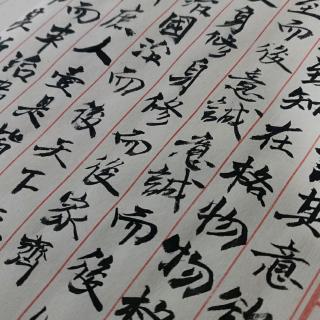 誠其意欲
知在格物物格
而後意誠意誠而後
身修身修而後家齊
治國治而後天下
庶人壹是皆
而末治